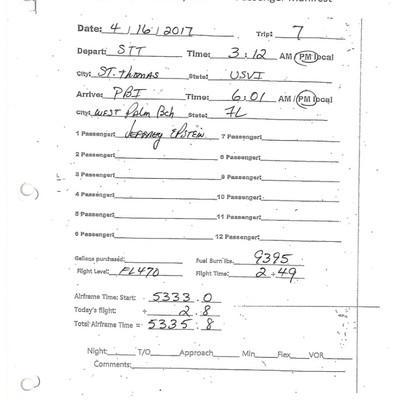 Passenger Manifest
Date: 4/16/2017 Trip: 7
Depart: STT Time: 3:12 AM PM local
City: ST. THOMAS State: USVI
Arrive: PBI Time: 6:01 AM PM local
City: WEST Palm Bch State: FL
1 Passenger: Jeffrey Epstein 7 Passenger:
2 Passenger: 8 Passenger:
3 Passenger: 9 Passenger:
4 Passenger: 10 Passenger:
5 Passenger: 11 Passenger:
6 Passenger: 12 Passenger:
Gallons purchased: Fuel Burn lbs. 9395
Flight Level: FL470 Flight Time: 2+49
Airframe Time: Start: 5333.0
Today's flight: + 2.8
Total Airframe Time = 5335.8
Night: T/O Approach Min Flex VOR
Comments: